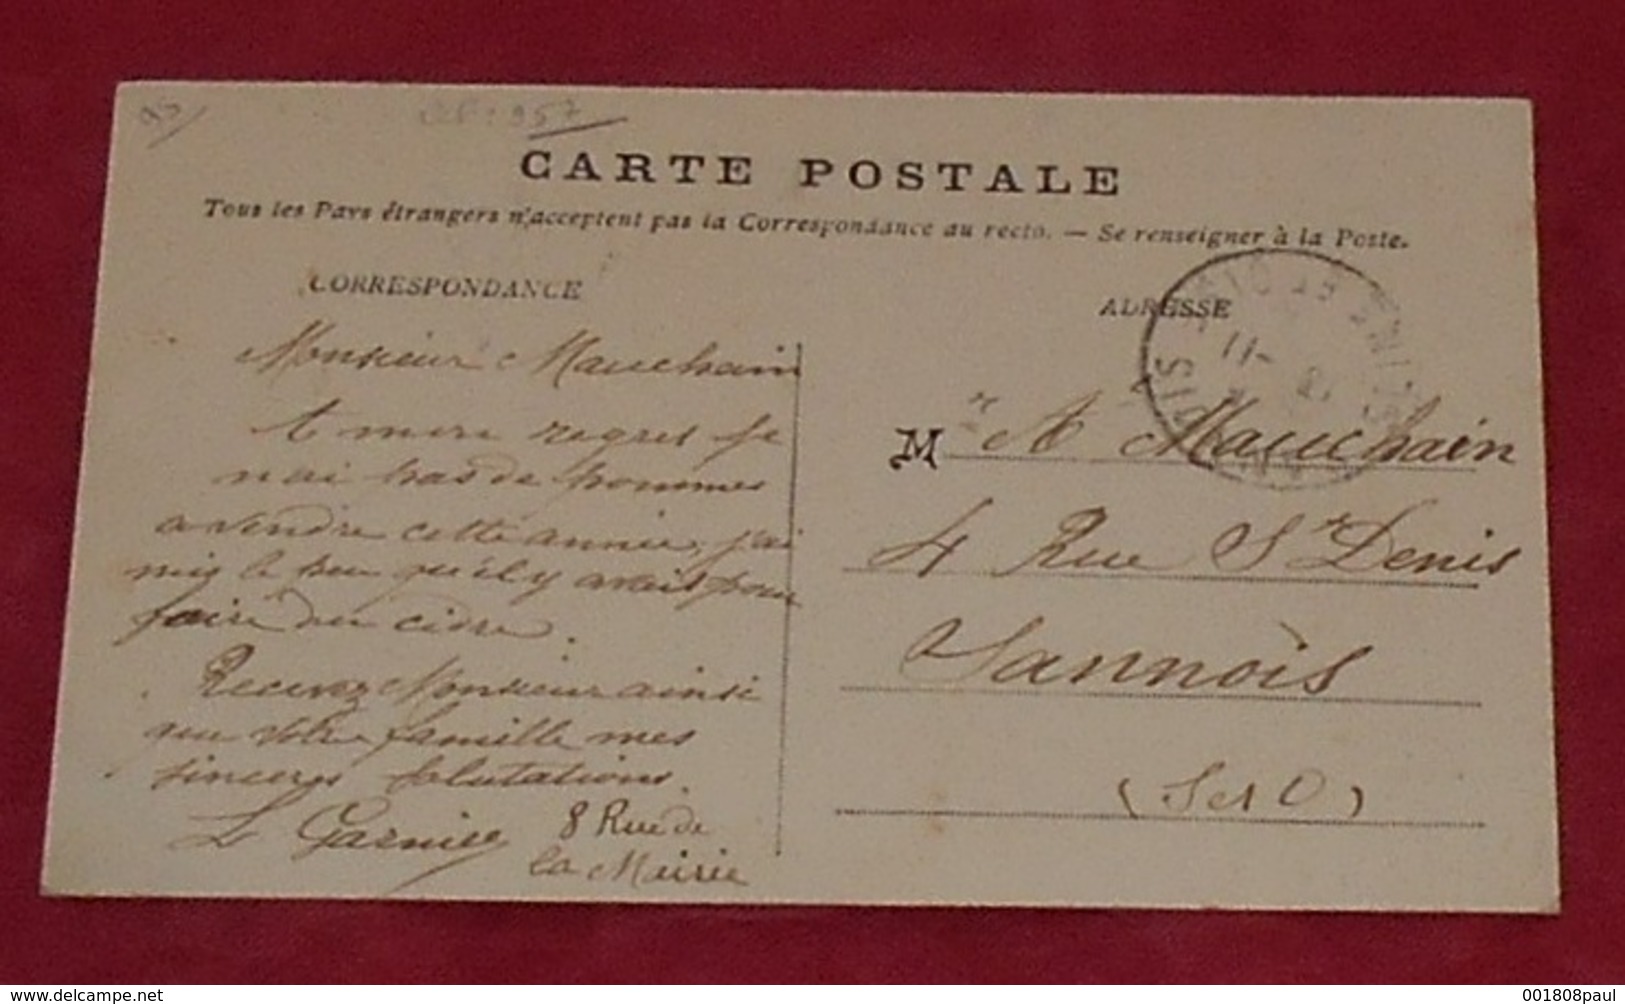 957
CARTE POSTALE
Tous les Pays étrangers n'acceptent pas la Correspondance au recto. — Se renseigner à la Poste.
CORRESPONDANCE
ADRESSE
Monsieur Mauchain
A mon regret je
n'ai pas de pommes
a vendre cette année, j'ai
mis le peu qu'il y avait pour
faire du cidre.
Recevez Monsieur ainsi
que votre famille mes
sinceres salutations.
L Garnier 8 Rue de
la Mairie
M r A Mauchain
4 Rue St Denis
Sannois
(S et O)
www.delcampe.net
001808paul